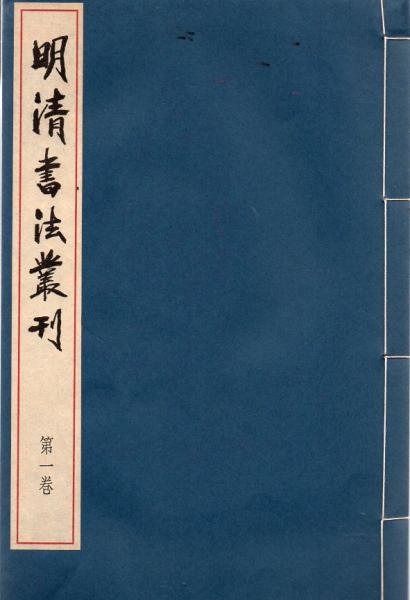 明清書法叢刊
第一卷